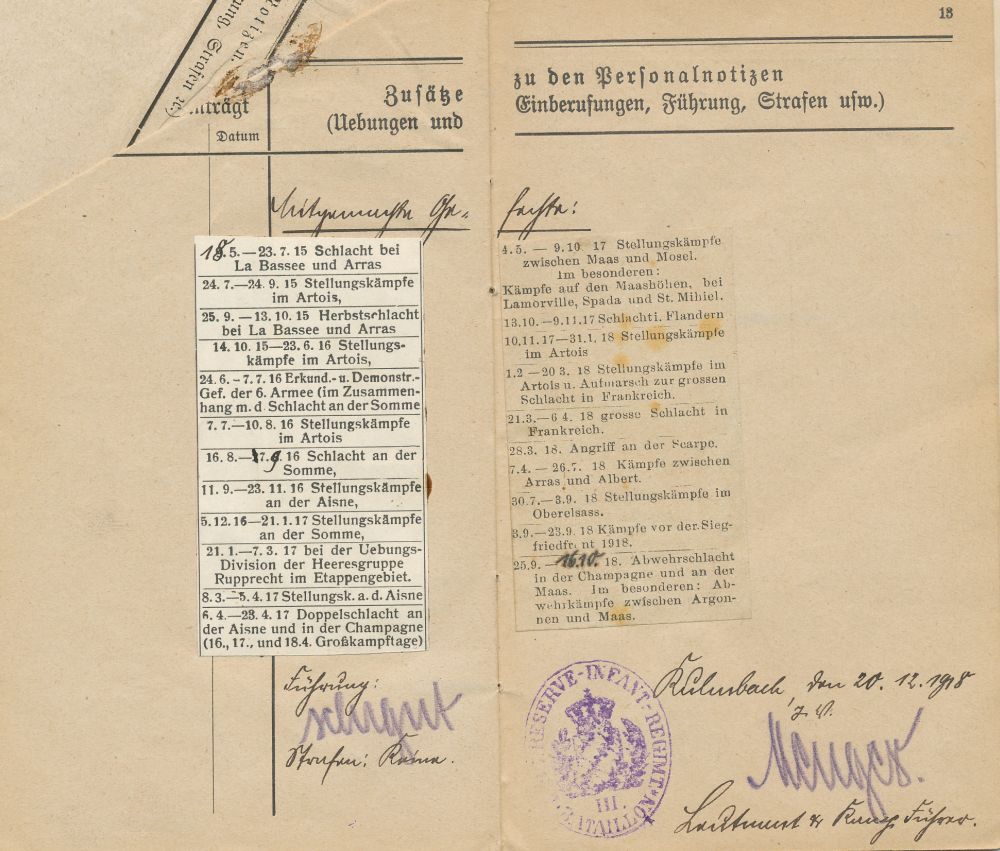 13
Notizen.
rung, Strafen ꝛc)
nträgt
Datum
Zusätze
(Uebungen und
zu den Personalnotizen
Einberufungen, Führung, Strafen usw.)
Mitgemachte Ge-
fechte:
18.5.—23.7.15 Schlacht bei
La Bassee und Arras
24.7.—24.9.15 Stellungskämpfe
im Artois,
25.9.—13.10.15 Herbstschlacht
bei La Bassee und Arras
14.10.15—23.6.16 Stellungs-
kämpfe im Artois,
24.6.-7.7.16 Erkund.- u. Demonstr.-
Gef. der 6. Armee (im Zusammen-
hang m. d. Schlacht an der Somme
7.7.—10.8.16 Stellungskämpfe
im Artois
16.8.—7.9.16 Schlacht an der
Somme,
11.9.—23.11.16 Stellungskämpfe
an der Aisne,
5.12.16—21.1.17 Stellungskämpfe
an der Somme,
21.1.—7.3.17 bei der Uebungs-
Division der Heeresgruppe
Rupprecht im Etappengebiet.
8.3.—5.4.17 Stellungsk. a. d. Aisne
6.4.—23.4.17 Doppelschlacht an
der Aisne und in der Champagne
(16., 17., und 18.4. Großkampftage)
4.5. — 9.10. 17 Stellungskämpfe
zwischen Maas und Mosel.
Im besonderen:
Kämpfe auf den Maashöhen, bei
Lamorville, Spada und St. Mihiel.
13.10.—9.11.17 Schlacht i. Flandern
10.11.17—31.1.18 Stellungskämpfe
im Artois
1.2 —20 3. 18 Stellungskämpfe im
Artois u. Aufmarsch zur grossen
Schlacht in Frankreich.
21.3.—6 4. 18 grosse Schlacht in
Frankreich.
28.3. 18. Angriff an der Scarpe.
7.4. — 26.7. 18 Kämpfe zwischen
Arras und Albert.
30.7.—3.9. 18 Stellungskämpfe im
Oberelsass.
3.9.—23.9. 18 Kämpfe vor der Sieg-
friedfr nt 1918.
25.9. — 16.10. 18. Abwehrschlacht
in der Champagne und an der
Maas. Im besonderen: Ab-
wehrkämpfe zwischen Argon-
nen und Maas.
Führung:
sehr gut
Strafen: Keine.
RESERVE-INFANT-REGIMT-No
III.
BATAILLON
Kulmbach, den 20.12.1918
J. V.
Leutnant & Komp Führer.